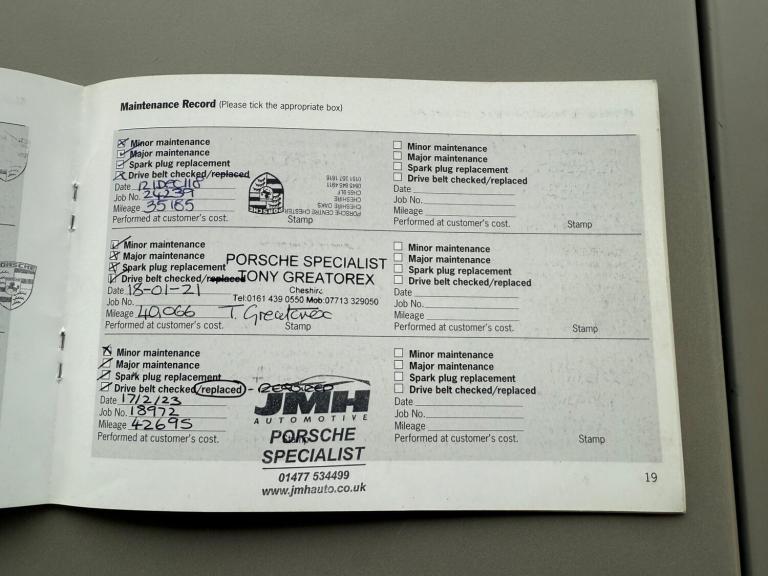 Maintenance Record (Please tick the appropriate box)
Minor maintenance
Major maintenance
Spark plug replacement
Drive belt checked/replaced
Date
Job No. 24239
Mileage 35185
Performed at customer's cost.
Stamp
PORSCHE
PORSCHE CENTRE CHESTER
CHESHIRE OAKS
CHESHIRE
Minor maintenance
Major maintenance
Spark plug replacement
Drive belt checked/replaced
Date 18-01-21
Job No.
Mileage 40,066
Performed at customer's cost.
Stamp
PORSCHE SPECIALIST
TONY GREATOREX
Cheshire
Tel:0161 439 0550 Mob:07713 329050
T. Greatorex
Minor maintenance
Major maintenance
Spark plug replacement
Drive belt checked/replaced -
Date 17/2/23
Job No. 18972
Mileage 42695
Performed at customer's cost.
Stamp
JMH
AUTOMOTIVE
PORSCHE
SPECIALIST
01477 534499
www.jmhauto.co.uk
Minor maintenance
Major maintenance
Spark plug replacement
Drive belt checked/replaced
Date
Job No.
Mileage
Performed at customer's cost.
Stamp
Minor maintenance
Major maintenance
Spark plug replacement
Drive belt checked/replaced
Date
Job No.
Mileage
Performed at customer's cost.
Stamp
Minor maintenance
Major maintenance
Spark plug replacement
Drive belt checked/replaced
Date
Job No.
Mileage
Performed at customer's cost.
Stamp
19